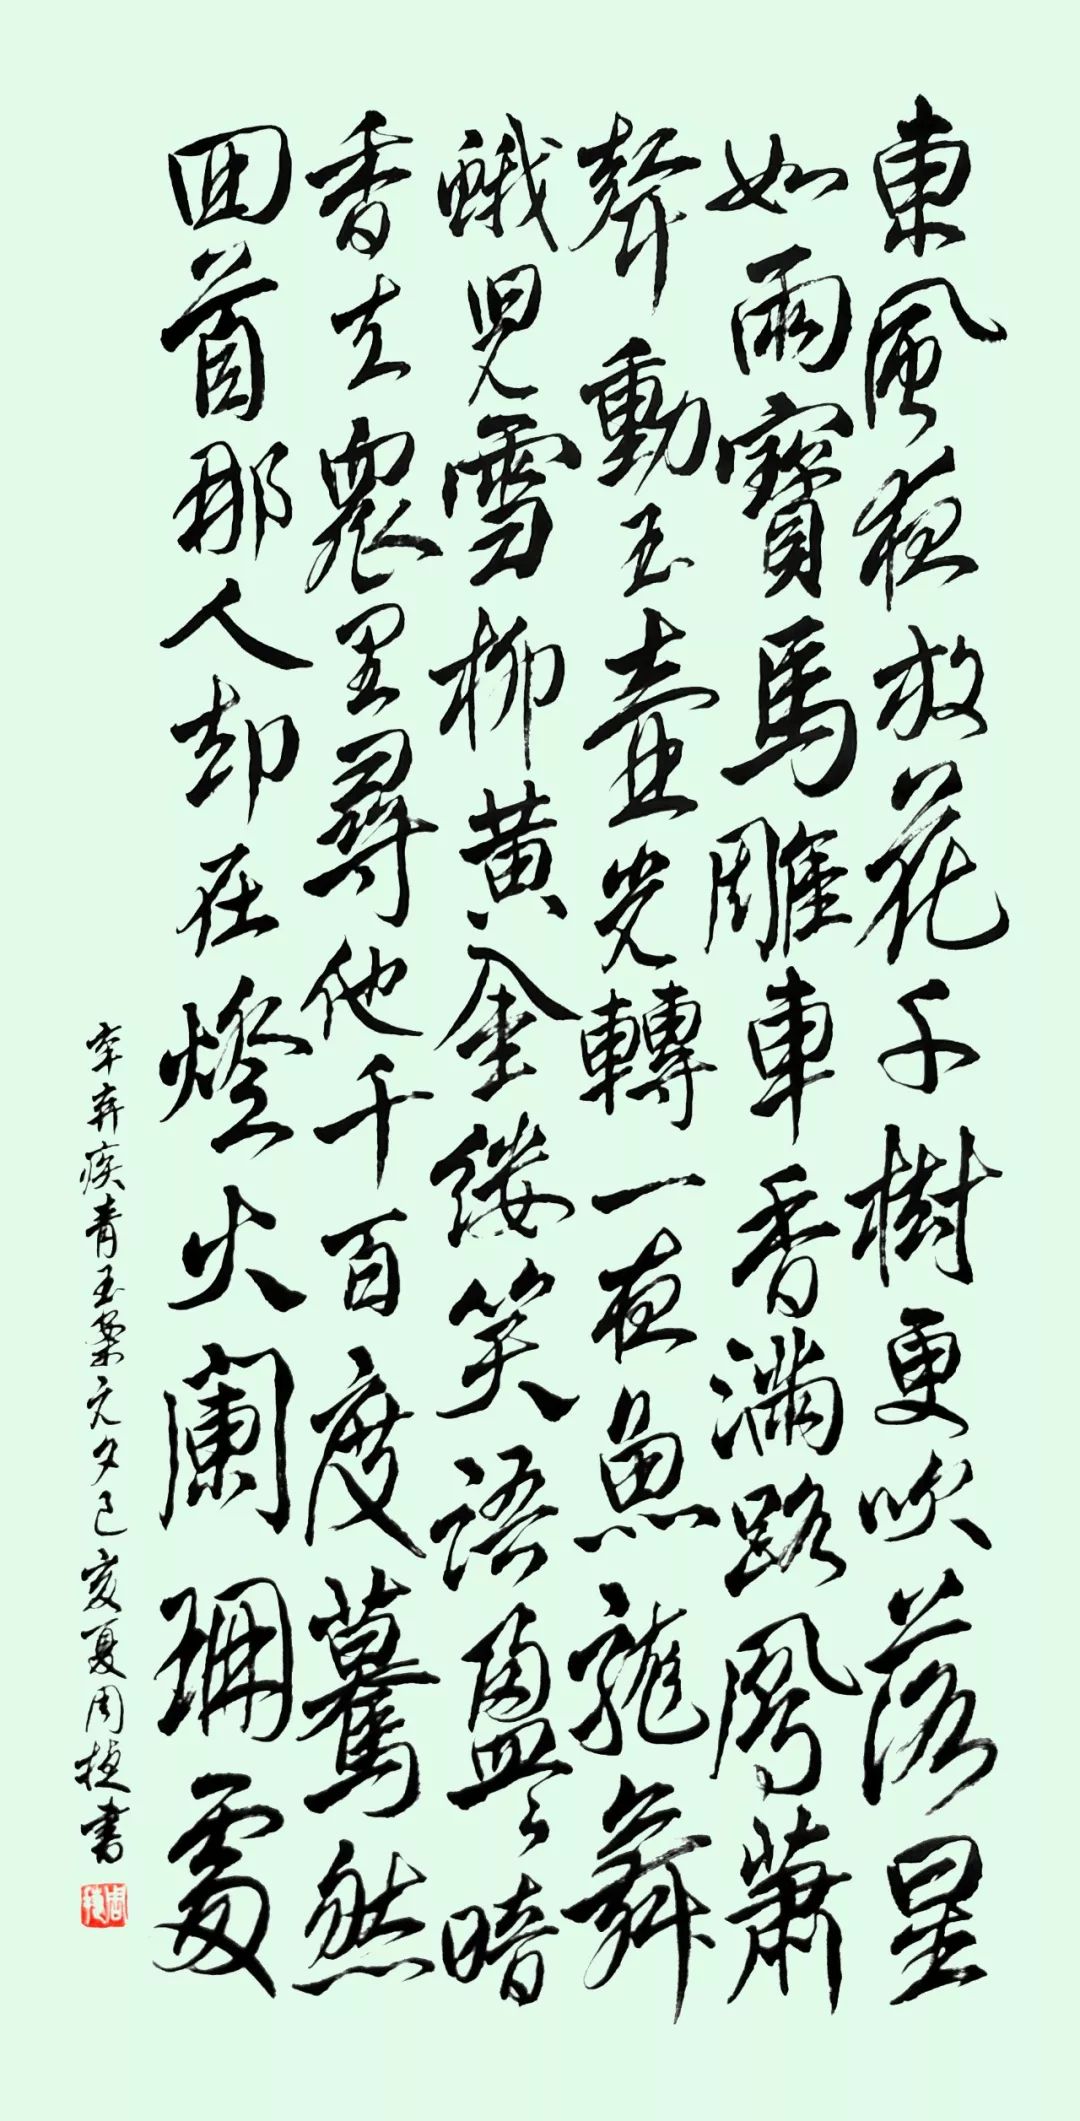 東風夜放花千樹更吹落星
如雨寶馬雕車香滿路鳳蕭
聲動玉壺光轉一夜魚龍舞
蛾兒雪柳黄金縷笑語盈々暗
香去衆里尋他千百度驀然
回首那人却在燈火闌珊處
辛弃疾青玉案元夕己亥夏周捷書